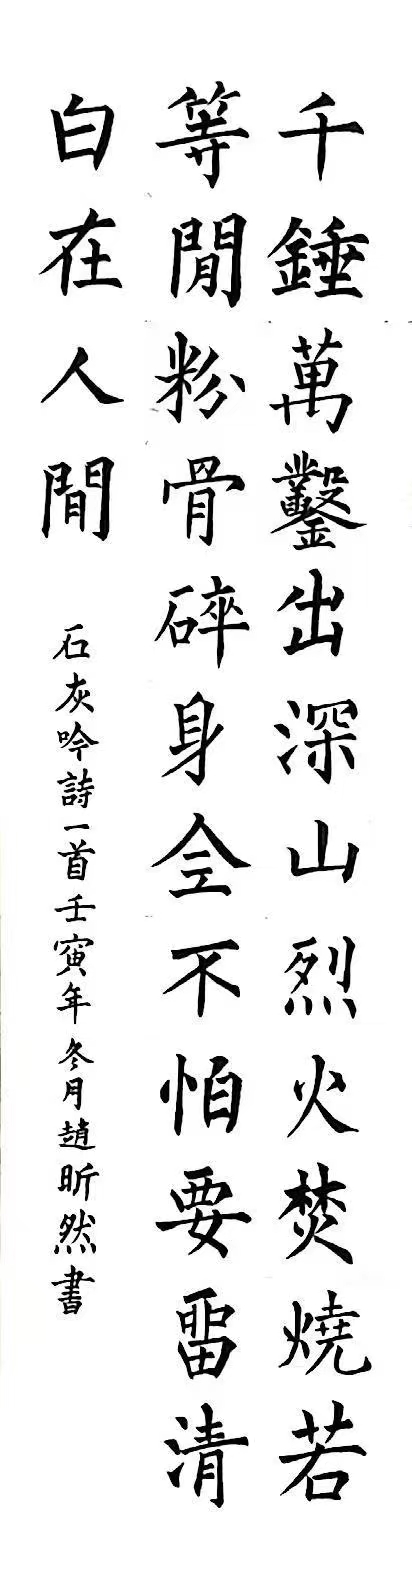 千錘萬鑿出深山烈火焚燒若
等閒粉骨碎身全不怕要留清
白在人間
石灰吟詩一首壬寅年冬月趙昕然書